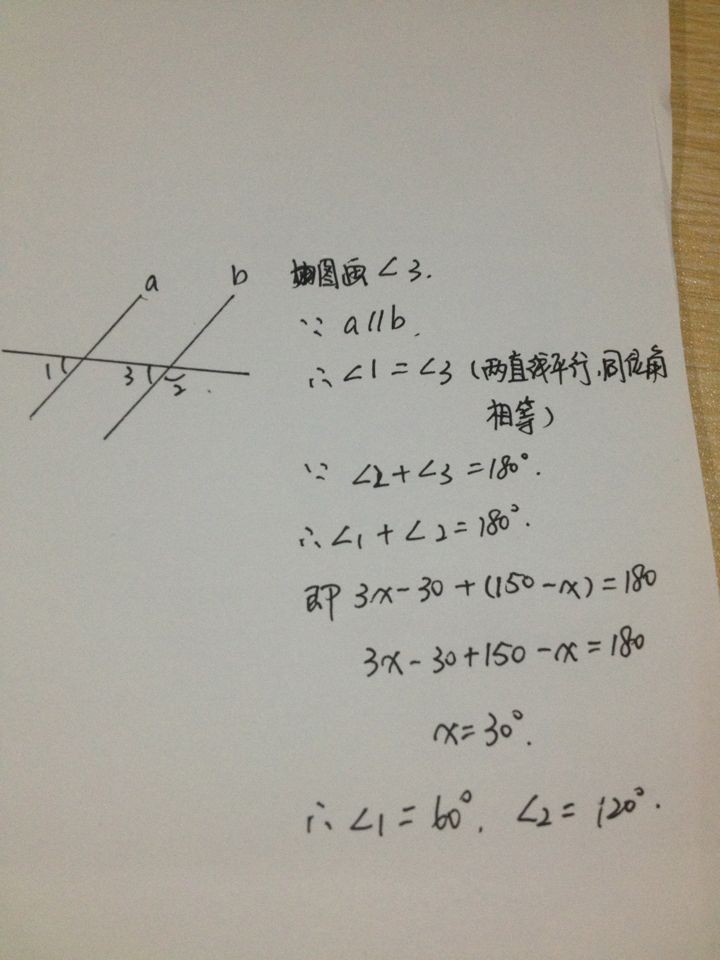 a b
1 3 2
如图画∠3.
∵ a∥b.
∴ ∠1=∠3 (两直线平行,同位角
相等)
∵ ∠2+∠3=180°.
∴ ∠1+∠2=180°.
即 3x-30+(150-x)=180
3x-30+150-x=180
x=30°.
∴ ∠1=60°. ∠2=120°.